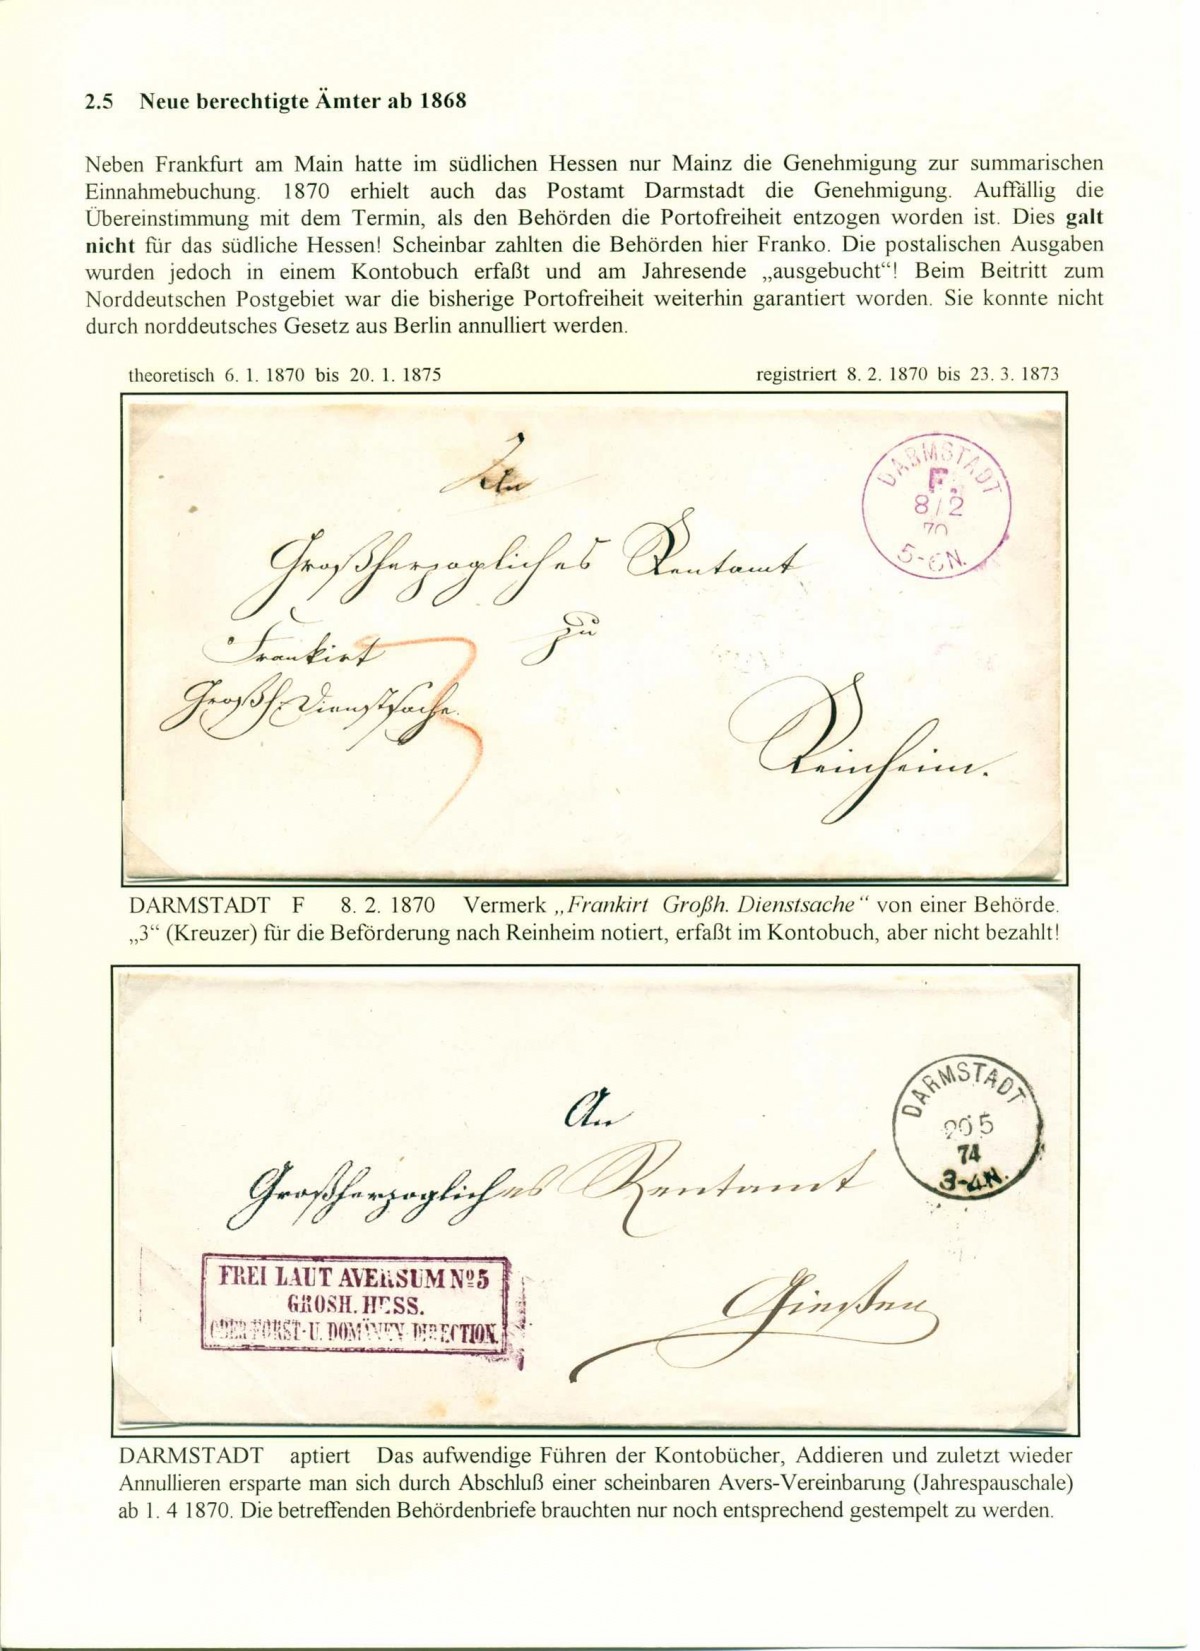 2.5 Neue berechtigte Ämter ab 1868
Neben Frankfurt am Main hatte im südlichen Hessen nur Mainz die Genehmigung zur summarischen
Einnahmebuchung. 1870 erhielt auch das Postamt Darmstadt die Genehmigung. Auffällig die
Übereinstimmung mit dem Termin, als den Behörden die Portofreiheit entzogen worden ist. Dies galt
nicht für das südliche Hessen! Scheinbar zahlten die Behörden hier Franko. Die postalischen Ausgaben
wurden jedoch in einem Kontobuch erfaßt und am Jahresende „ausgebucht“! Beim Beitritt zum
Norddeutschen Postgebiet war die bisherige Portofreiheit weiterhin garantiert worden. Sie konnte nicht
durch norddeutsches Gesetz aus Berlin annulliert werden.
theoretisch 6. 1. 1870 bis 20. 1. 1875
registriert 8. 2. 1870 bis 23. 3. 1873
DARMSTADT
F.
8/2
70
5-6N.
An
Großherzogliches Rentamt
zu
Frankirt
Großh. Dienstsache.
3
Reinheim.
DARMSTADT F 8. 2. 1870 Vermerk „Frankirt Großh. Dienstsache“ von einer Behörde.
„3“ (Kreuzer) für die Beförderung nach Reinheim notiert, erfaßt im Kontobuch, aber nicht bezahlt!
DARMSTADT
20 5
74
3-4N.
An
Großherzogliches Rentamt
Gießen
FREI LAUT AVERSUM No 5
GROSH. HESS.
OBER-FORST- U. DOMÄNEN-DIRECTION.
DARMSTADT aptiert Das aufwendige Führen der Kontobücher, Addieren und zuletzt wieder
Annullieren ersparte man sich durch Abschluß einer scheinbaren Avers-Vereinbarung (Jahrespauschale)
ab 1. 4 1870. Die betreffenden Behördenbriefe brauchten nur noch entsprechend gestempelt zu werden.